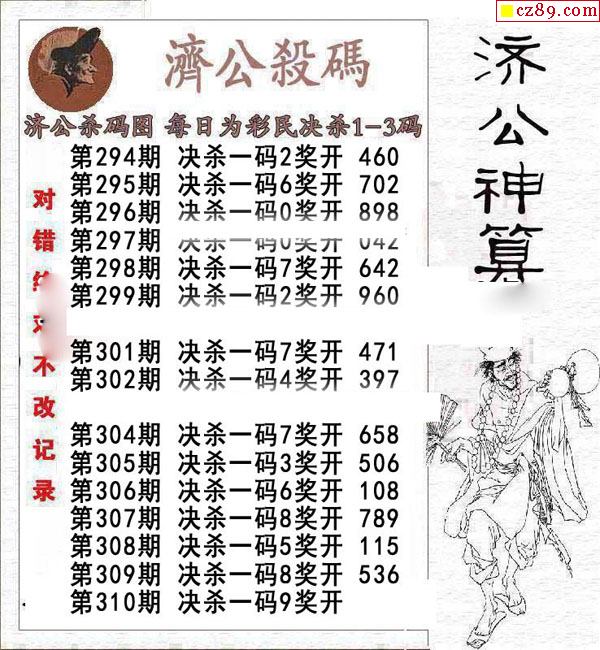 cz89.com
濟公殺碼
济公神算
济公杀码图 每日为彩民决杀1-3码
第294期 决杀一码2奖开 460
第295期 决杀一码6奖开 702
第296期 决杀一码0奖开 898
第297期 决杀一码0奖开 042
第298期 决杀一码7奖开 642
第299期 决杀一码2奖开 960
第301期 决杀一码7奖开 471
第302期 决杀一码4奖开 397
第304期 决杀一码7奖开 658
第305期 决杀一码3奖开 506
第306期 决杀一码6奖开 108
第307期 决杀一码8奖开 789
第308期 决杀一码5奖开 115
第309期 决杀一码8奖开 536
第310期 决杀一码9奖开
对错
不改记录